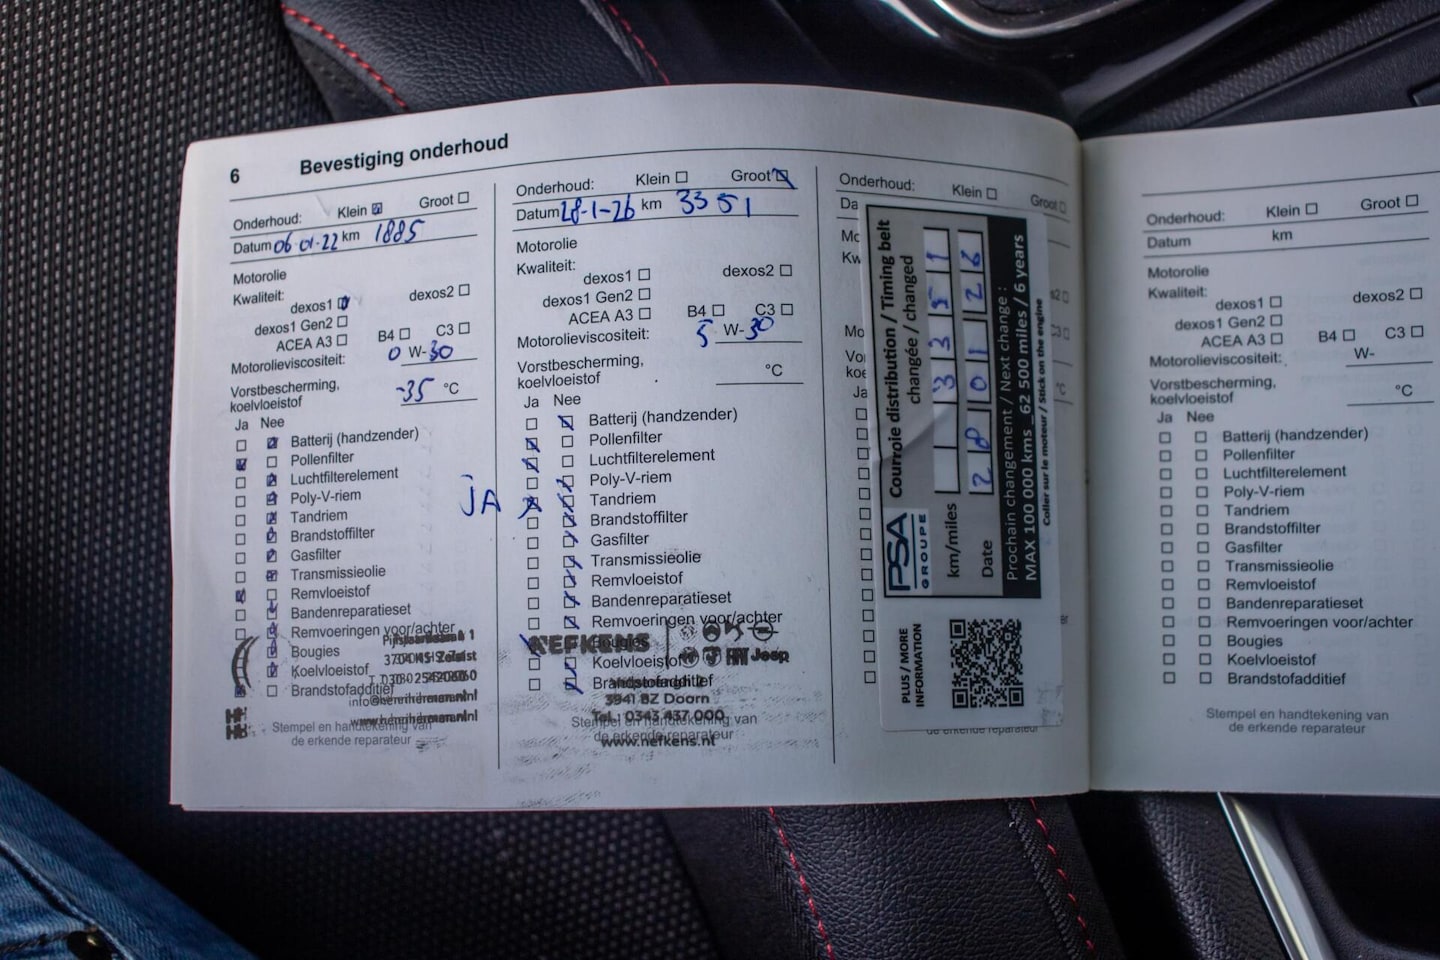 6 Bevestiging onderhoud
Onderhoud: Klein Groot
Datum 06 01-22 km 1885
Motorolie
Kwaliteit:
dexos1 dexos2
dexos1 Gen2
ACEA A3 B4 C3
Motorolieviscositeit: 0 W-30
Vorstbescherming,
koelvloeistof -35 °C
Ja Nee
Batterij (handzender)
Pollenfilter
Luchtfilterelement
Poly-V-riem
Tandriem
Brandstoffilter
Gasfilter
Transmissieolie
Remvloeistof
Bandenreparatieset
Remvoeringen voor/achter
Bougies
Koelvloeistof
Brandstofadditief
Stempel en handtekening van
de erkende reparateur
Onderhoud: Klein Groot
Datum 28-1-26 km 33 51
Motorolie
Kwaliteit:
dexos1 dexos2
dexos1 Gen2
ACEA A3 B4 C3
Motorolieviscositeit: 5 W-30
Vorstbescherming,
koelvloeistof °C
Ja Nee
Batterij (handzender)
Pollenfilter
Luchtfilterelement
Poly-V-riem
JA Tandriem
Brandstoffilter
Gasfilter
Transmissieolie
Remvloeistof
Bandenreparatieset
Remvoeringen voor/achter
NEFKENS Bougies
FIAT Jeep
Koelvloeistof
Brandstofadditief
3941 BZ Doorn
Tel.: 0343 437 000
Stempel en handtekening van
de erkende reparateur
www.nefkens.nl
Onderhoud: Klein Groot
Courroie distribution / Timing belt
changée / changed
km/miles 3 3 5 1
Date 2 8 0 1 2 6
Prochain changement / Next change :
MAX 100 000 kms _62 500 miles / 6 years
Coller sur le moteur / Stick on the engine
PSA
GROUPE
PLUS / MORE
INFORMATION
de erkende reparateur
Onderhoud: Klein Groot
Datum km
Motorolie
Kwaliteit:
dexos1 dexos2
dexos1 Gen2
ACEA A3 B4 C3
Motorolieviscositeit: W-
Vorstbescherming,
koelvloeistof °C
Ja Nee
Batterij (handzender)
Pollenfilter
Luchtfilterelement
Poly-V-riem
Tandriem
Brandstoffilter
Gasfilter
Transmissieolie
Remvloeistof
Bandenreparatieset
Remvoeringen voor/achter
Bougies
Koelvloeistof
Brandstofadditief
Stempel en handtekening van
de erkende reparateur